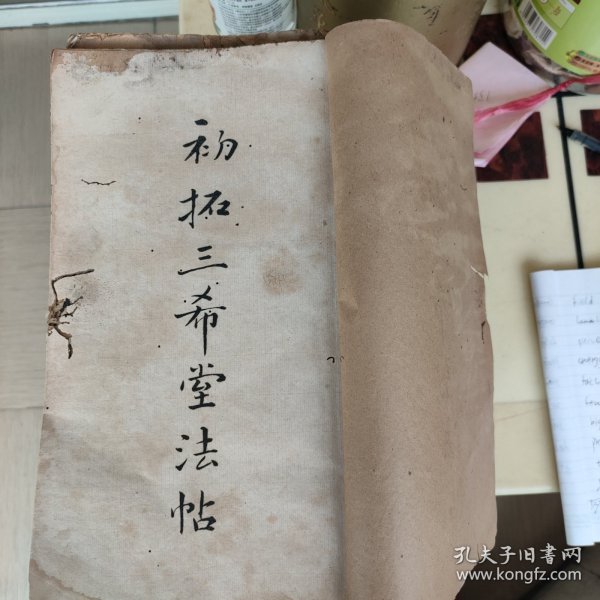 初拓三希堂法帖
field
孔夫子旧書网
www.kongfz.com